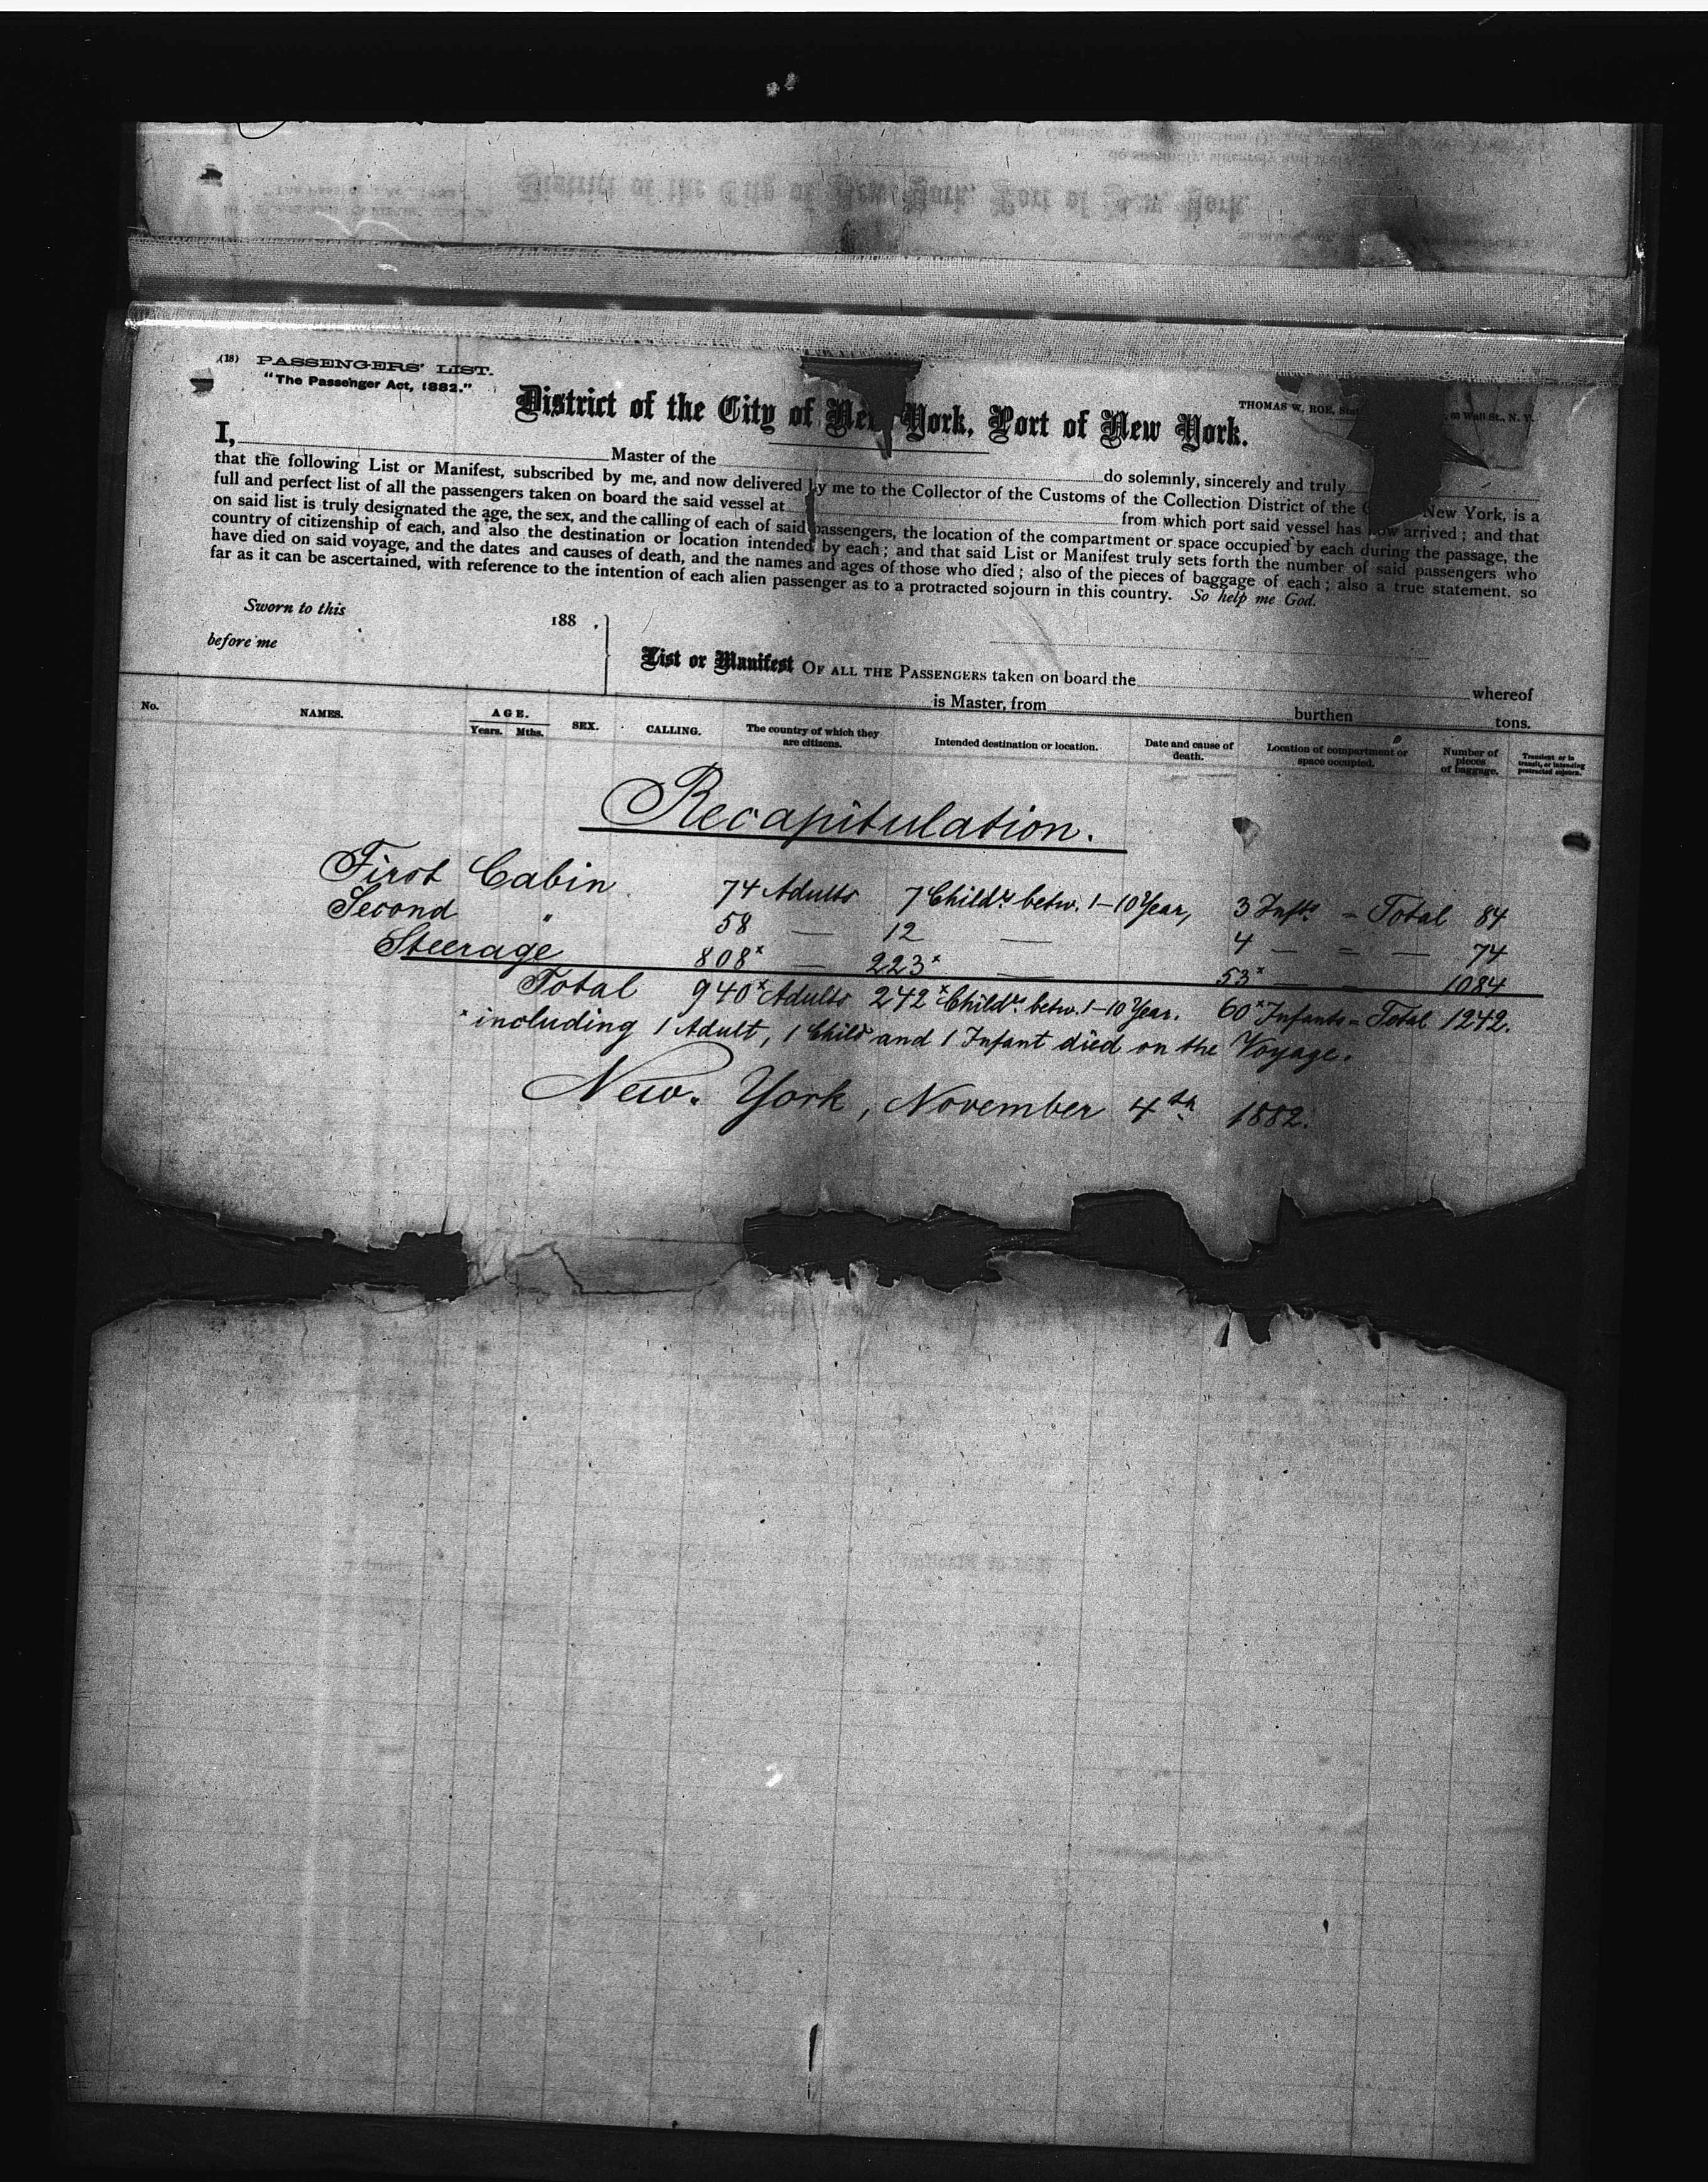 (18) PASSENGERS' LIST.
"The Passenger Act, 1882."
THOMAS W. ROE, Wall St., N. Y.
District of the City of New York, Port of New York.
I, Master of the do solemnly, sincerely and truly
that the following List or Manifest, subscribed by me, and now delivered by me to the Collector of the Customs of the Collection District of the New York, is a
full and perfect list of all the passengers taken on board the said vessel at from which port said vessel has now arrived; and that
on said list is truly designated the age, the sex, and the calling of each of said passengers, the location of the compartment or space occupied by each during the passage, the
country of citizenship of each, and also the destination or location intended by each; and that said List or Manifest truly sets forth the number of said passengers who
have died on said voyage, and the dates and causes of death, and the names and ages of those who died; also of the pieces of baggage of each; also a true statement, so
far as it can be ascertained, with reference to the intention of each alien passenger as to a protracted sojourn in this country. So help me God.
Sworn to this 188 .
before me
List or Manifest OF ALL THE PASSENGERS taken on board the whereof
is Master, from burthen tons.
No. NAMES. AGE. Years. Mths. SEX. CALLING. The country of which they are citizens. Intended destination or location. Date and cause of death. Location of compartment or space occupied. Number of pieces of baggage. Transient or in transit, or intending protracted sojourn.
Recapitulation.
First Cabin 74 Adults 7 Childr. betw. 1-10 Year, 3 Infts. = Total 84
Second " 58 — 12 — 4 — = — 74
Steerage 808x — 223x — 53x — = 1084
Total 940x Adults 242x Childr. betw. 1-10 Year. 60x Infants = Total 1242.
x including 1 Adult, 1 Child and 1 Infant died on the Voyage.
New. York, November 4th 1882.